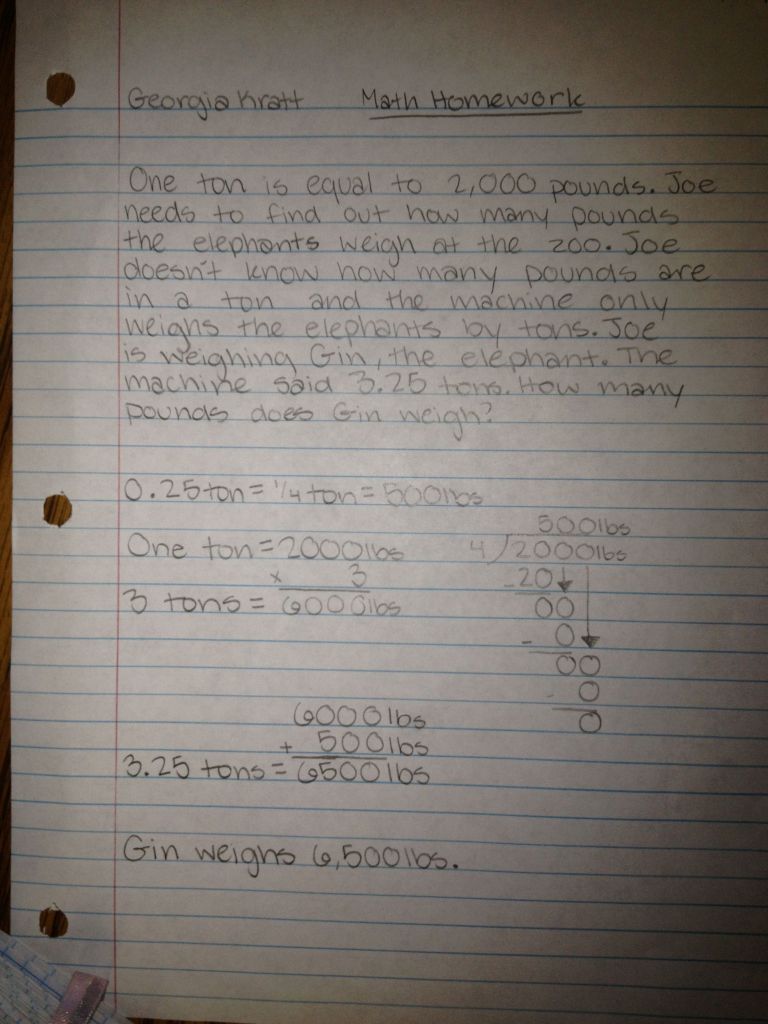 Georgia Kratt Math Homework
One ton is equal to 2,000 pounds. Joe
needs to find out how many pounds
the elephants weigh at the zoo. Joe
doesn't know how many pounds are
in a ton and the machine only
weighs the elephants by tons. Joe
is weighing Gin, the elephant. The
machine said 3.25 tons. How many
pounds does Gin weigh?
0.25 ton = 1/4 ton = 500lbs
500lbs
One ton = 2000lbs 4)2000lbs
x 3 -20
3 tons = 6000lbs 00
- 0
00
- 0
6000lbs 0
+ 500lbs
3.25 tons = 6500lbs
Gin weighs 6,500lbs.